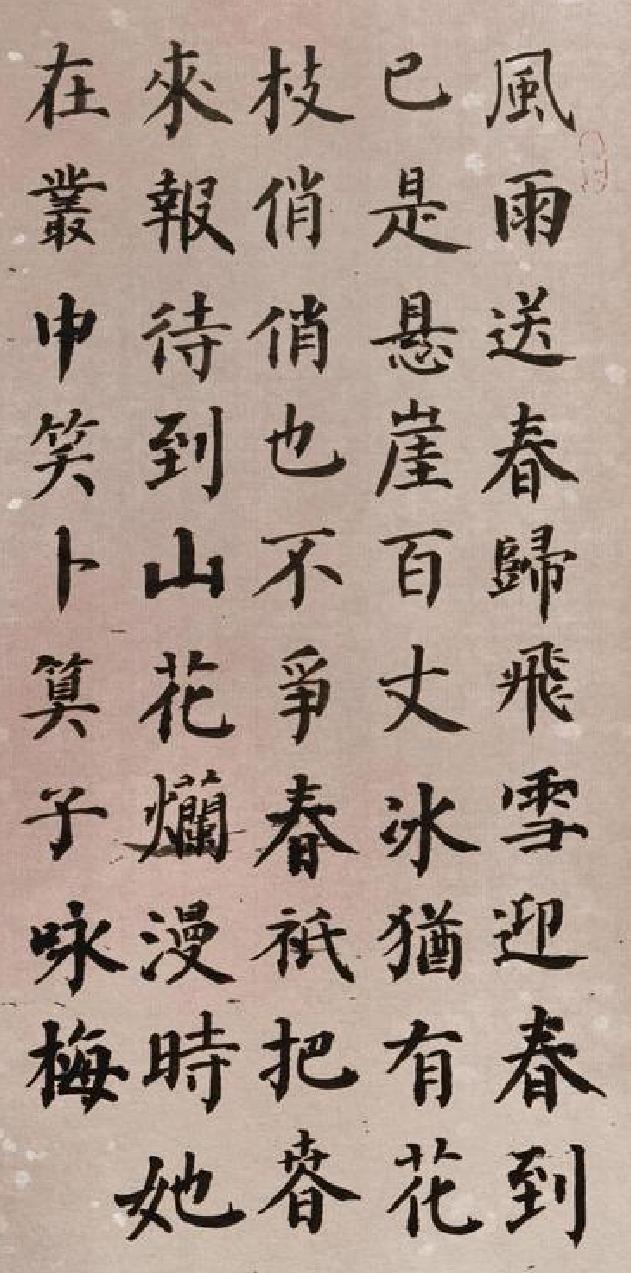 風雨送春歸飛雪迎春到
已是悬崖百丈冰猶有花
枝俏俏也不爭春祇把春
來報待到山花爛漫時她
在叢中笑卜算子咏梅